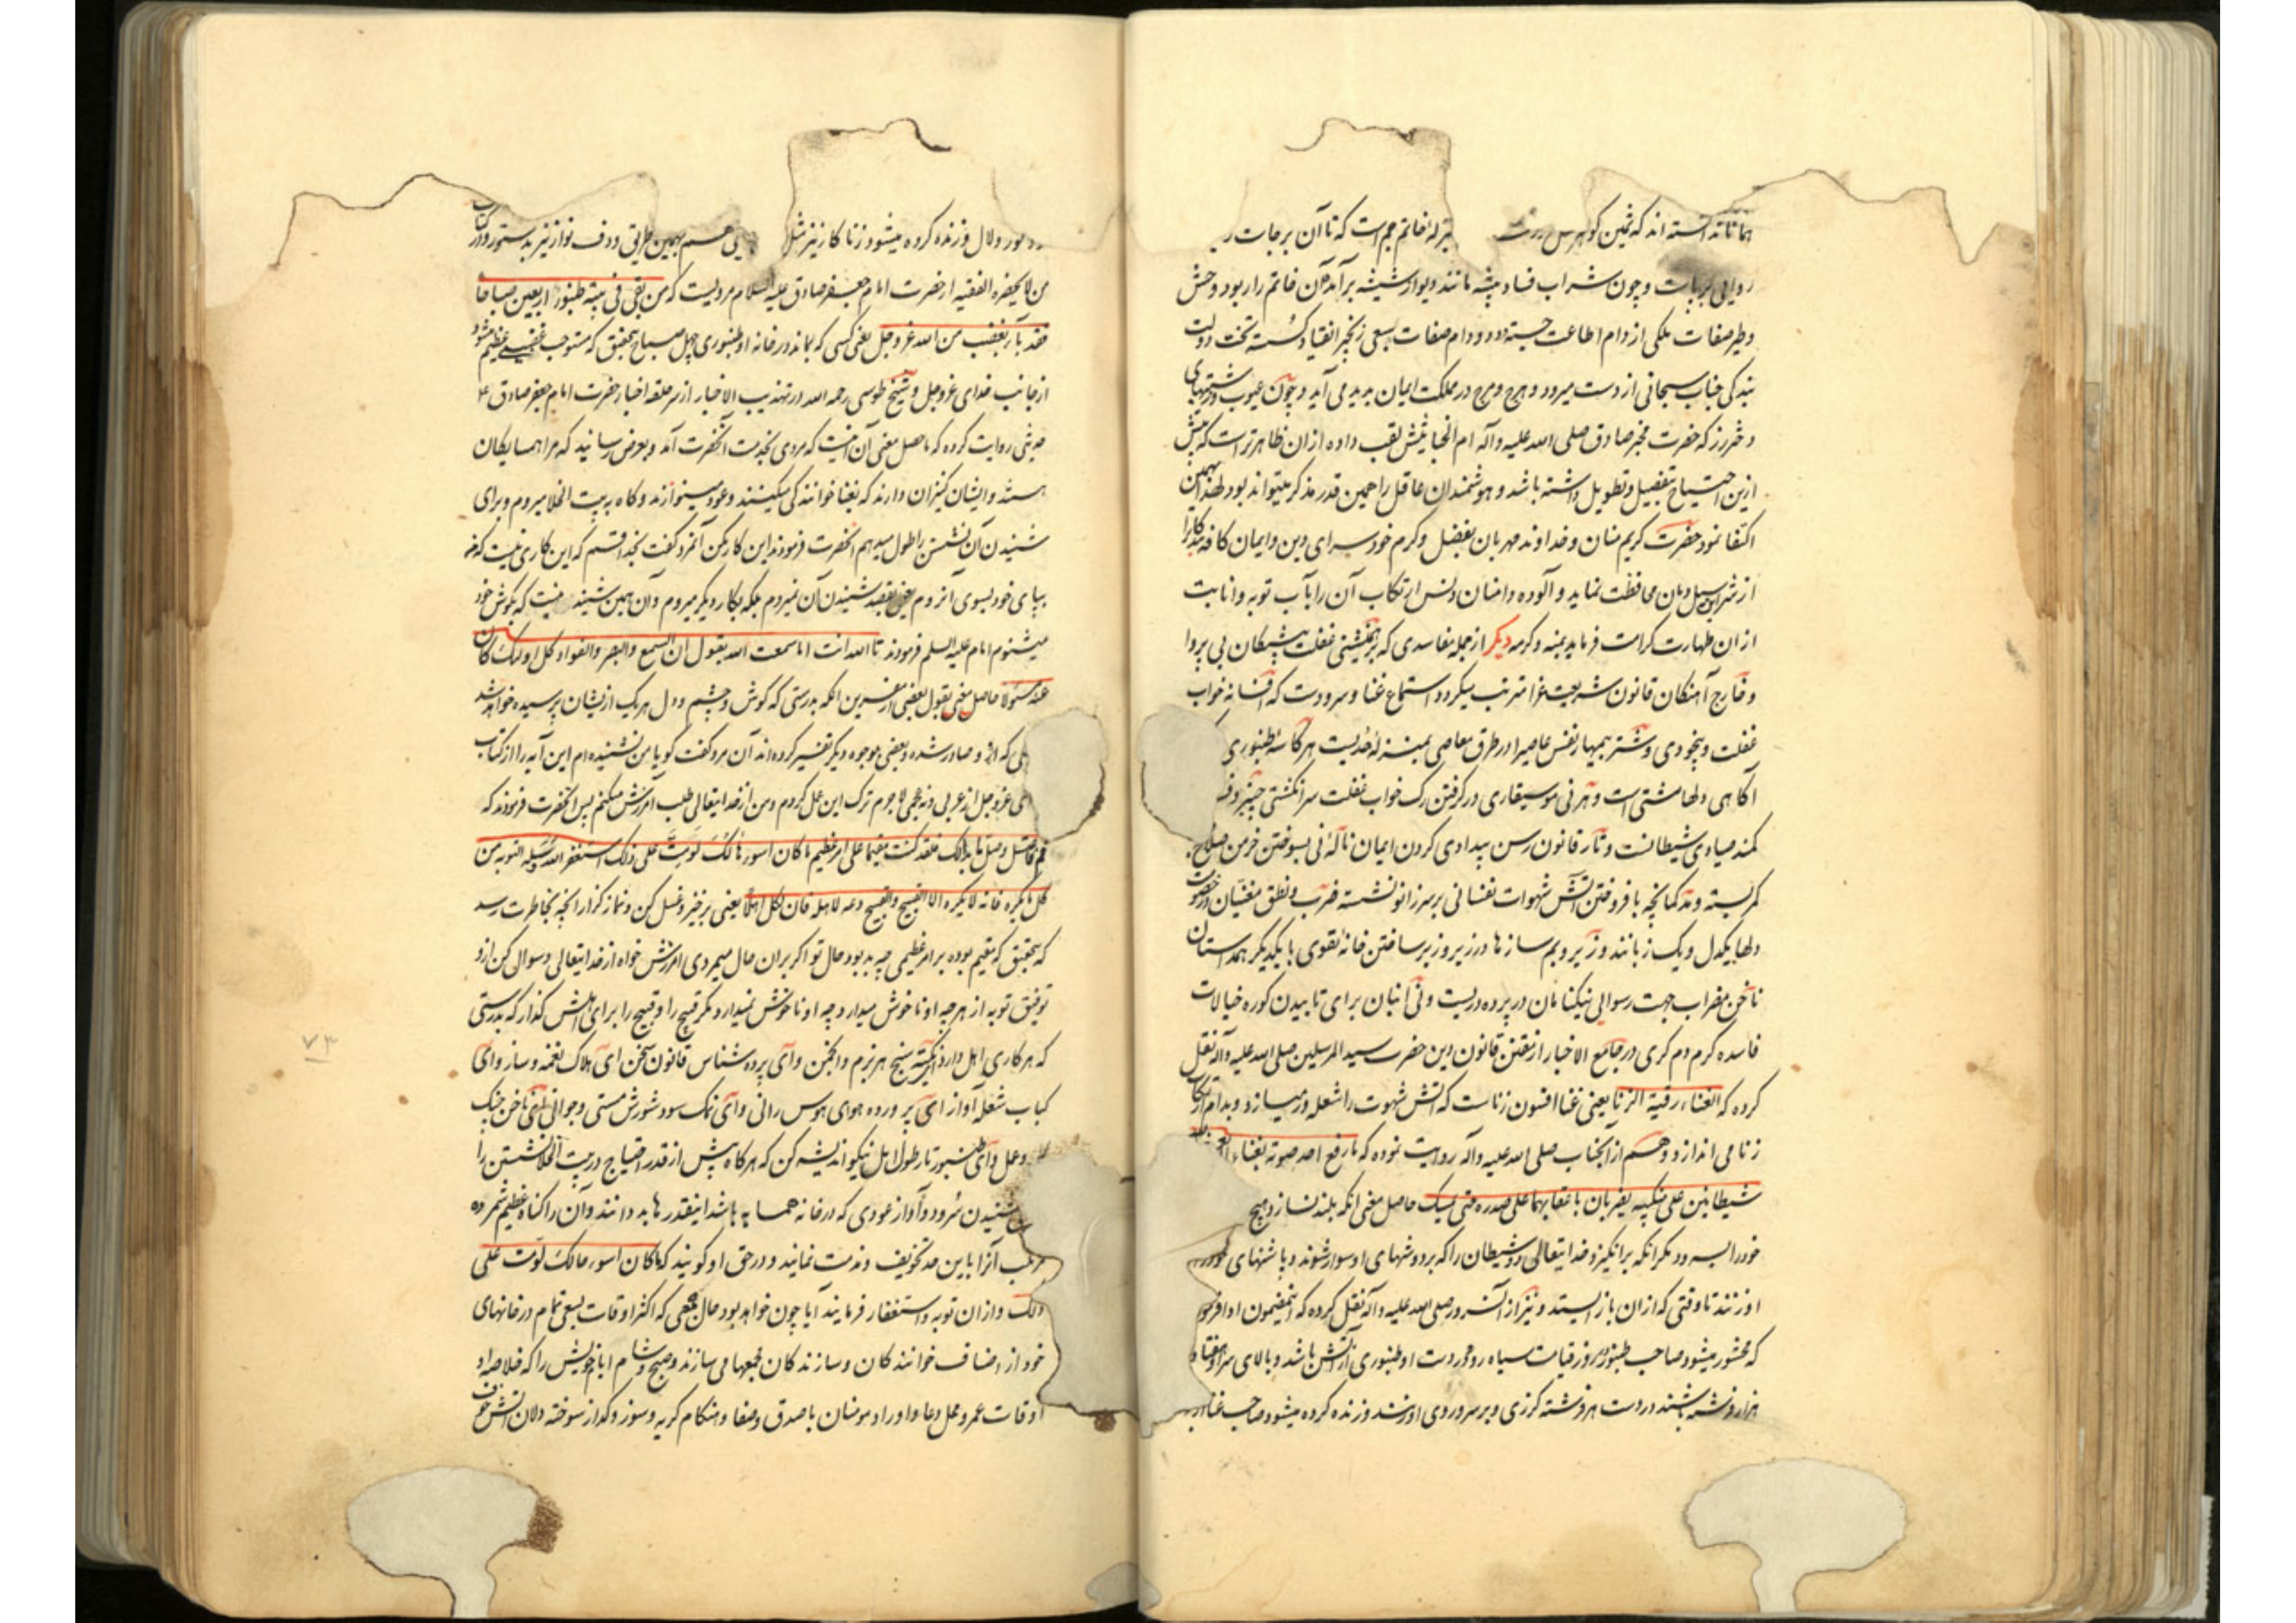 همانا ندانسته اند که ثمین گوهر خاتم جم است که تا آن بر جاست
روایی بر جاست و چون شراب فساد پیشه مانند دیو از شیشه برآید آن خاتم را ربود و حش
و طیر صفات ملکی از دام اطاعت جسته و دد و دام صفات سبعی زنجیر انقیاد گسسته تخت دولت
بندگی جناب سبحانی از دست میرود و هرج و مرج در مملکت ایمان پدید می آید و چون عیوب و زشتیهای
دختر رز که حضرت مخبر صادق صلی الله علیه و آله ام الخبائثش لقب داده ازان ظاهرتر است که بیش
ازین احتیاج بتفصیل و تطویل داشته باشد و هوشمندان عاقل را همین قدر مذکر میتواند بود لهذا بهمین
اکتفا نمود حضرت کریم منان و خداوند مهربان بفضل و کرم خود سرای دین و ایمان کافه
از شر این سیل دمان محافظت نماید و آلوده دامنان دنس ارتکاب آن را بآب توبه و انابت
ازان طهارت کرامت فرماید بمنه و کرمه دیگر از جمله مفاسدی که بر غفلت پیشگان بی پروا
و خارج آهنگان قانون شریعت غرا مترتب میگردد استماع غنا و سرودست که افسانه خواب
غفلت و بیخودی و شتر بیمهار نفس عاصی را در طرق معاصی بمنزله حدیست هر کاسه طنبوری
آگاهی دلها مشتی است و هر نی موسیقاری در گرفتن رگ خواب غفلت سر انگشتی
کمند صیادی شیطانست و تار قانون رسن بیدادی گردن ایمان ناله نی بسوختن خرمن صلاح
کمر بسته و کمانچه بافروختن آتش شهوات نفسانی بر سر زانو نشسته ضرب و نطق مغنیان در
دلها یکدل و یک زبانند و زیر و بم سازها در زیر و زبر ساختن خانه تقوی با یکدیگر همداستان
ناخن مضراب جهت رسوایی نیکنامان در پرده دریست و نی انبان برای تابیدن کوره خیالات
فاسده گرم دم گری در جامع الاخبار از مقنن قانون دین حضرت سید المرسلین صلی الله علیه و آله نقل
کرده که الغناء رقیة الزنا یعنی غنا افسون زناست که آتش شهوت را شعله ور میسازد و بدام
زنا می اندازد و هم از آنجناب صلی الله علیه و آله روایت نموده که ما رفع احد صوته بغناء الا بعث الله
شیطانین علی منکبیه یضربان باعقابهما علی صدره حتی یمسک حاصل معنی آنکه بلند نسازد هیچ
خود را بسرود مگر آنکه برانگیزد خدایتعالی دو شیطان را که بر دوشهای او سوار شوند و با پاشنهای خود بر
او زنند تا وقتی که ازان باز ایستد و نیز از آنسرور صلی الله علیه و آله نقل کرده که
که محشور میشود صاحب طنبور در روز قیامت سیاه رو و در دست او طنبوری از آتش باشد و بالای سر او هفتاد
هزار فرشته باشند در دست هر فرشته گرزی و بر سر و روی او زنند و زنده کرده میشود صاحب غنا
کور و لال و زنده کرده میشود زناکار نیز مثل بهمین طریق و دف نواز نیز بدستور و در کتاب
من لا یحضره الفقیه از حضرت امام جعفر صادق علیه السلام مرویست که من بقی فی بیته طنبور اربعین صباحا
فقد باء بغضب من الله عز و جل یعنی کسی که بماند در خانه او طنبوری چهل صباح بتحقیق که مستوجب غضب عظیم میشود
از جانب خدای عز و جل و شیخ طوسی رحمه الله در تهذیب الاخبار از سر حلقه اخیار حضرت امام جعفر صادق ع
حدیثی روایت کرده که حاصل معنی آن اینست که مردی بخدمت آنحضرت آمد و بعرض رسانید که مرا همسایگان
هستند و ایشان کنیزان دارند که بغنا خوانندگی میکنند و عود مینوازند و گاه ببیت الخلا میروم و برای
شنیدن آن نشستن را طول میدهم آنحضرت فرمودند این کار مکن آنمرد گفت بخدا قسم که این کاری نیست که من
بپای خود بسوی آن روم یعنی بقصد شنیدن آن نمیروم بلکه بکار دیگر میروم و آن همین شنیدنیست که بگوش خود
میشنوم امام علیه السلم فرمودند تا الله انت اما سمعت الله یقول ان السمع و البصر و الفواد کل اولئک کان
عنه مسئولا حاصل معنی بقول بعضی از مفسرین آنکه بدرستی که گوش و چشم و دل هر یک ازیشان پرسیده خواهد شد
که ازو صادر شده و بعضی بوجوه دیگر تفسیر کرده اند آن مرد گفت گویا من نشنیده ام این آیه را از کتاب
عز و جل از عربی و نه عجمی لاجرم ترک این عمل کردم و من از خدایتعالی طلب آمرزش میکنم پس آنحضرت فرمودند که
قم فاغتسل و صل ما بدالک فلقد کنت مقیما علی امر عظیم ما کان اسوء حالک لو مت علی ذلک استغفر الله و سله التوبه من
کل ما یکره فانه لا یکره الا القبیح و القبیح دعه لاهله فان لکل اهلا یعنی برخیز و غسل کن و نماز گزار آنچه بخاطرت رسد
که بتحقیق که مقیم بوده بر امر عظیمی چه بد بود حال تو اگر بران حال میمردی آمرزش خواه از خدایتعالی و سوال کن ازو
توفیق توبه از هر چه او ناخوش میدارد چه او ناخوش نمیدارد مگر قبیح را و قبیح را برای اهلش گذار که بدرستی
که هر کاری اهلی دارد ای نکته سنج هر بزم و انجمن و ای پرده شناس قانون سخن ای هلاک نغمه و ساز و ای
کباب شعله آواز ای پرورده هوای هوس رانی و ای نمک سود شورش مستی و جوانی ای ناخن چنگ
و عمل و ای طنبور تار طول امل نیکو اندیشه کن که هر گاه بیش از قدر احتیاج در بیت الخلا نشستن را
شنیدن سرود و آواز عودی که در خانه همسایه باشد اینقدرها بد دانند و آن را گناه عظیم شمرده
مرتکب آنرا باین حد تخویف و مذمت نمایند و در حق او گویند که ما کان اسوء حالک لو مت علی
ذلک و ازان توبه و استغفار فرمایند آیا چون خواهد بود حال جمعی که اکثر اوقات بسعی تمام در خانهای
خود از اصناف خوانندگان و سازندگان مجمعها می سازند و صبح و شام ایام خویش را که خلاصه
اوقات عمر و محل دعا و اوراد مومنان با صدق و صفا و هنگام گریه و سوز و گداز سوخته دلان آتش خوف
۷۳